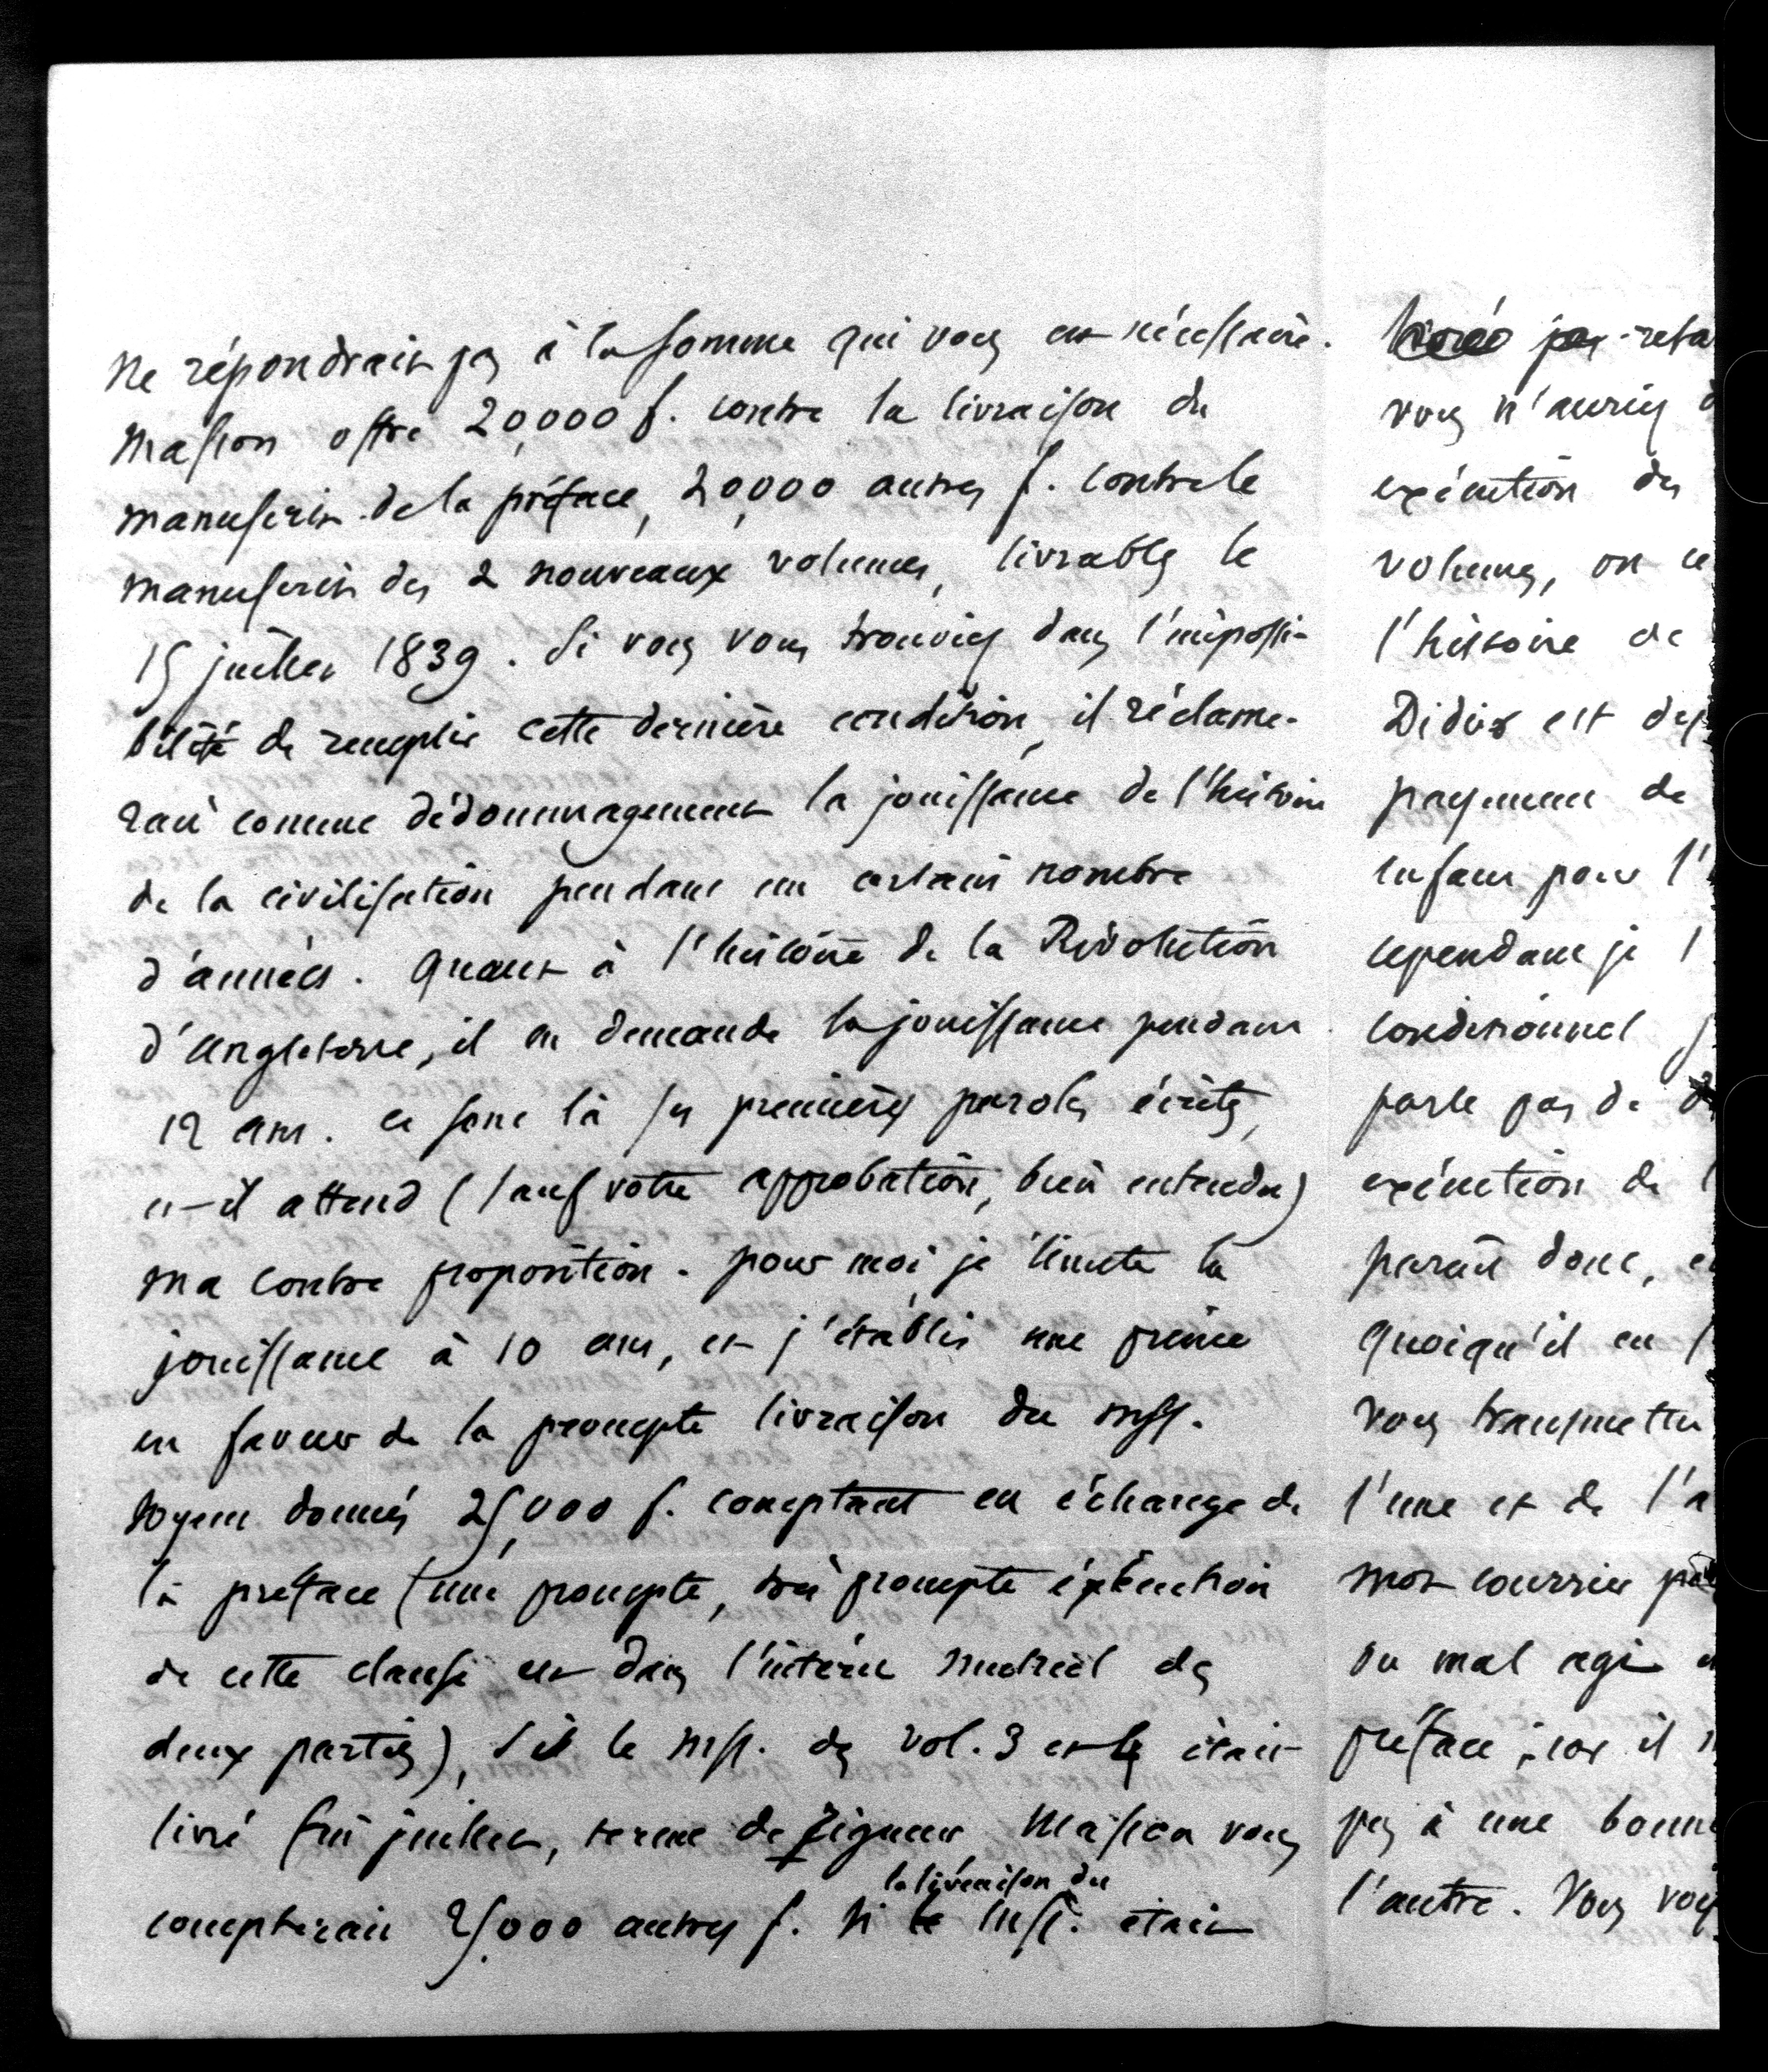 ne répondrait pas à la somme qui vous est nécessaire.
Masson offre 20,000 f. contre la livraison du
manuscrit de la préface, 20,000 autres f. contre le
manuscrit des 2 nouveaux volumes, livrables le
15 juillet 1839. Si vous vous trouviez dans l'impossi-
bilité de remplir cette dernière condition, il réclame-
rait comme dédommagement la jouissance de l'histoire
de la civilisation pendant un certain nombre
d'années. Quant à l'histoire de la Révolution
d'angleterre, il en demande la jouissance pendant
12 ans. ce sont là ses premières paroles écrites,
et il attend (sauf votre approbation, bien entendu)
ma contre proposition. pour moi, je limite la
jouissance à 10 ans, et j'établis une prime
en faveur de la prompte livraison du mss.
Soyent donnés 25,000 f. comptant en échange de
la préface (une prompte, très prompte exécution
de cette clause est dans l'intérêt matériel des
deux parties), si le mss. des vol. 3 et 4 était
livré fin juillet, terme de rigueur Masson vous
la livraison du
compterait 25,000 autres f. si le mss. était
reta
vous n'auriez
exécution des
volumes, on
l'histoire de
Didier est
payement de
enfant pour l'
cependant je
conditionnel
parle pas de
exécution de
parait donc,
quoiqu'il en
vous transmettre
l'une et de l'a
mon courrier
ou mal agi
préface ; car il
pas à une bonne
l'autre. Vous voy